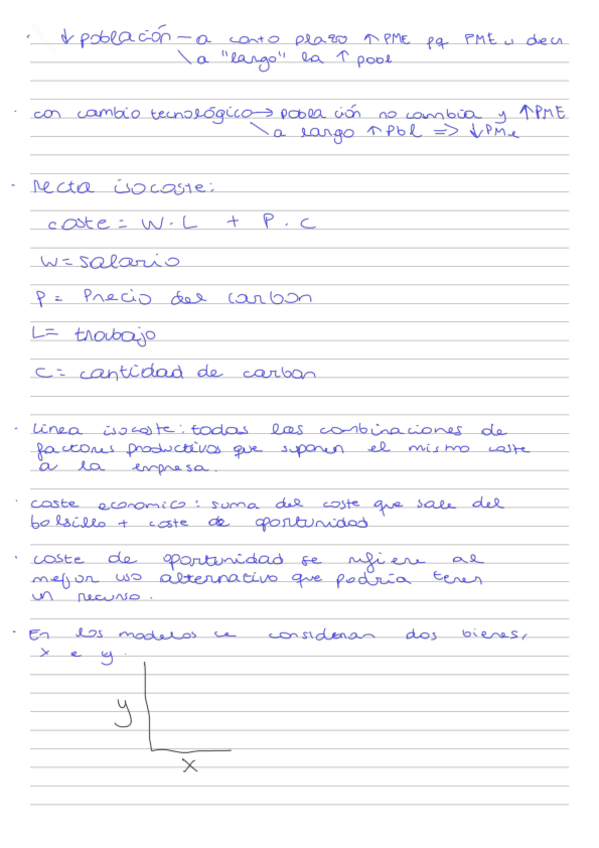 · ↓ población – a corto plazo ↑ PME pq PME es decr
\ a "largo" la ↑ pobl
· con cambio tecnológico → población no cambia y ↑ PME
\ a largo ↑ Pbl => ↓ PMe
· recta isocoste:
coste = W · L + P · C
W = salario
P = Precio del carbon
L = trabajo
C = cantidad de carbon
· linea isocoste: todas las combinaciones de
factores productivos que suponen el mismo coste
a la empresa.
· coste economico: suma del coste que sale del
bolsillo + coste de oportunidad
· coste de oportunidad se refiere al
mejor uso alternativo que podria tener
un recurso.
· En los modelos se consideran dos bienes,
x e y.
y
x